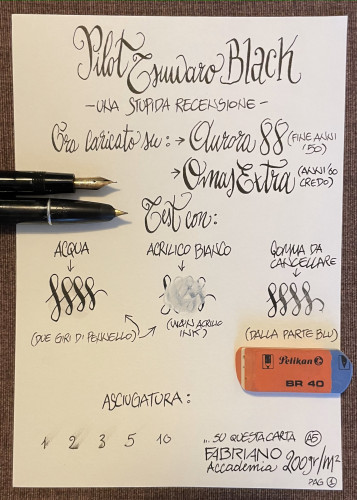 Pilot Tsuwaro Black
- UNA STUPIDA RECENSIONE -
Ora caricato su: → Aurora 88 (FINE ANNI '50)
→ Omas Extra (ANNI '60 CREDO)
Test con:
ACQUA
ACRILICO BIANCO
GOMMA DA CANCELLARE
(DUE GIRI DI PENNELLO)
ACRILIC INK)
(DALLA PARTE BLU)
Pelikan
BR 40
ASCIUGATURA:
1 2 3 5 10
... SU QUESTA CARTA A5
FABRIANO
Accademia 200gr/m²
PAG 1